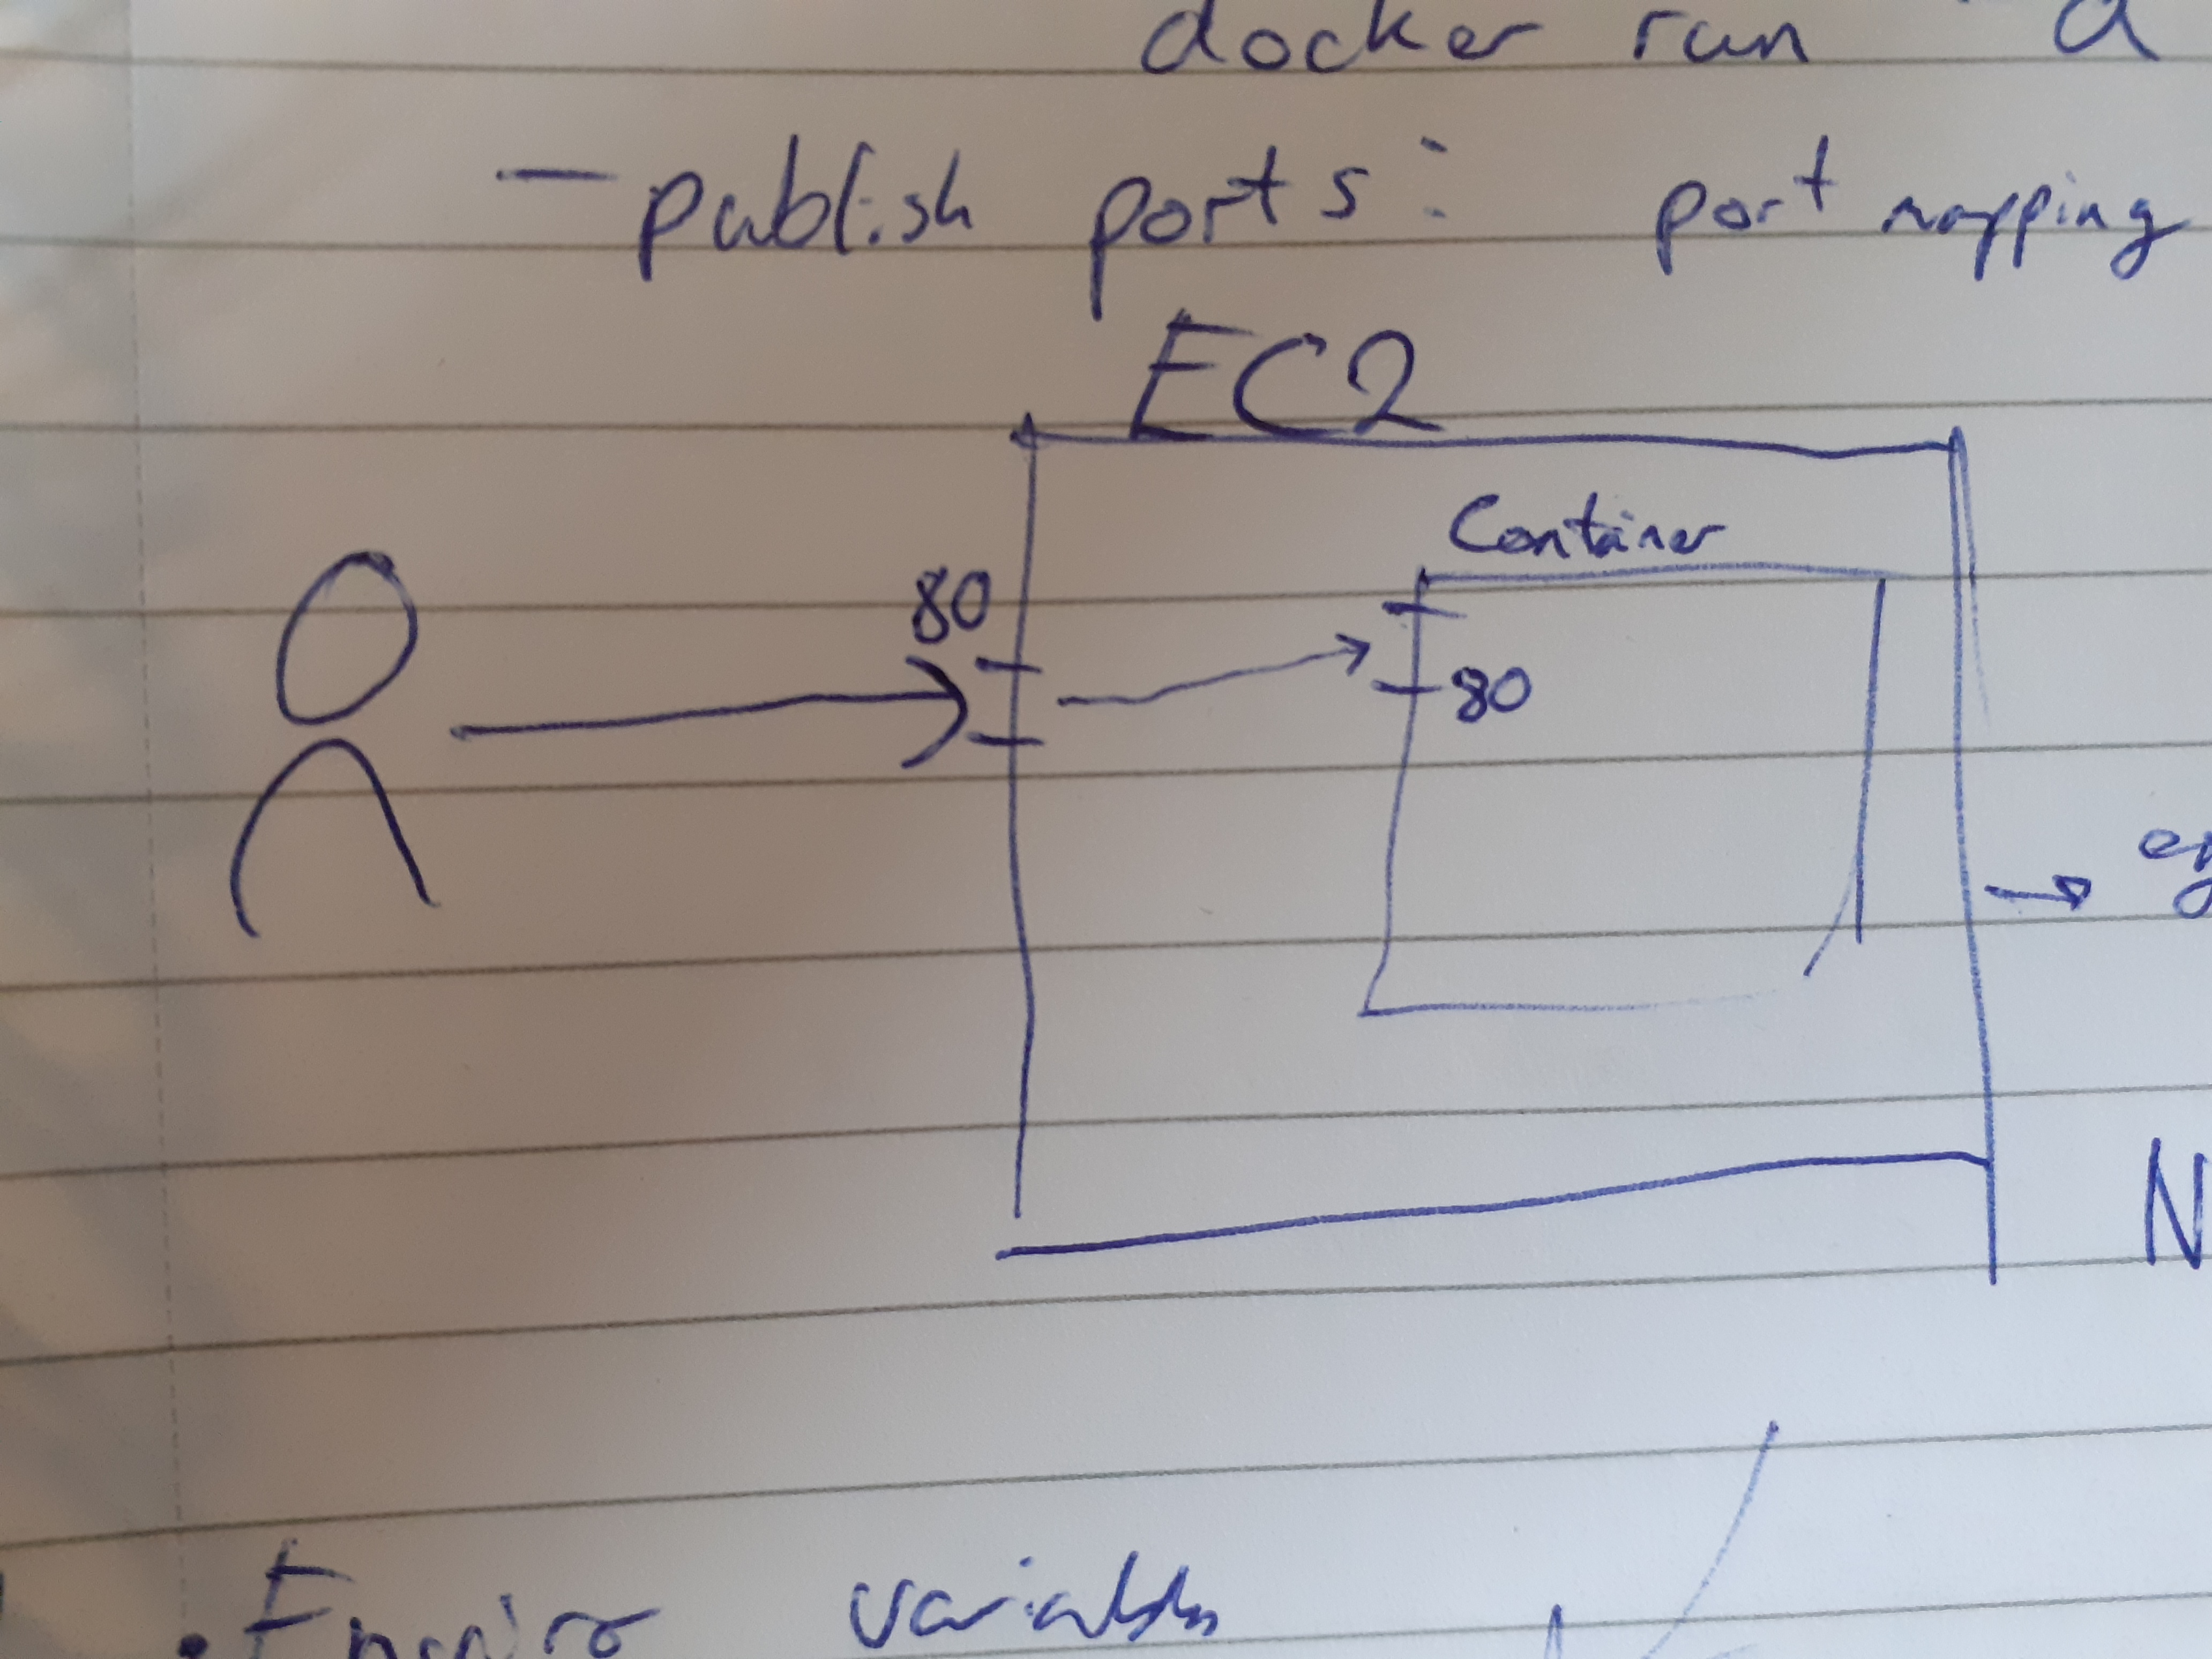 docker run -d
- publish ports: port mapping
EC2
Container
80
80
variables